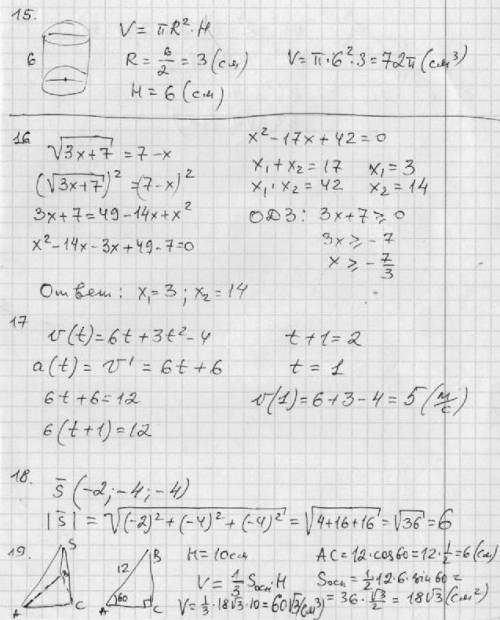 15.
6
V = πR²·H
R = 6/2 = 3 (см)
H = 6 (см)
V = π·6²·3 = 72π (см³)
16
√(3x+7) = 7-x
(√(3x+7))² = (7-x)²
3x+7 = 49-14x+x²
x²-14x-3x+49-7=0
x²-17x+42=0
x₁+x₂=17 x₁=3
x₁·x₂=42 x₂=14
ОДЗ: 3x+7 ≥ 0
3x ≥ -7
x ≥ -7/3
Ответ: x₁=3; x₂=14
17
v(t)=6t+3t²-4
a(t) = v' = 6t+6
6t+6=12
6(t+1)=12
t+1=2
t=1
v(1)=6+3-4=5 (м/с)
18.
s̄ (-2; -4; -4)
|s̄| = √((-2)²+(-4)²+(-4)²) = √(4+16+16) = √36 = 6
19.
S
A
C
B
12
60
A
C
H=10см
V = 1/3 Sосн·H
V = 1/3·18√3·10 = 60√3 (см³)
AC=12·cos60=12·1/2=6(см)
Sосн=1/2·12·6·sin60=
=36·√3/2 = 18√3 (см²)